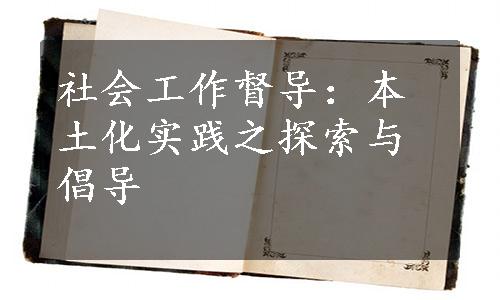 社会工作督导：本
土化实践之探索与
倡导